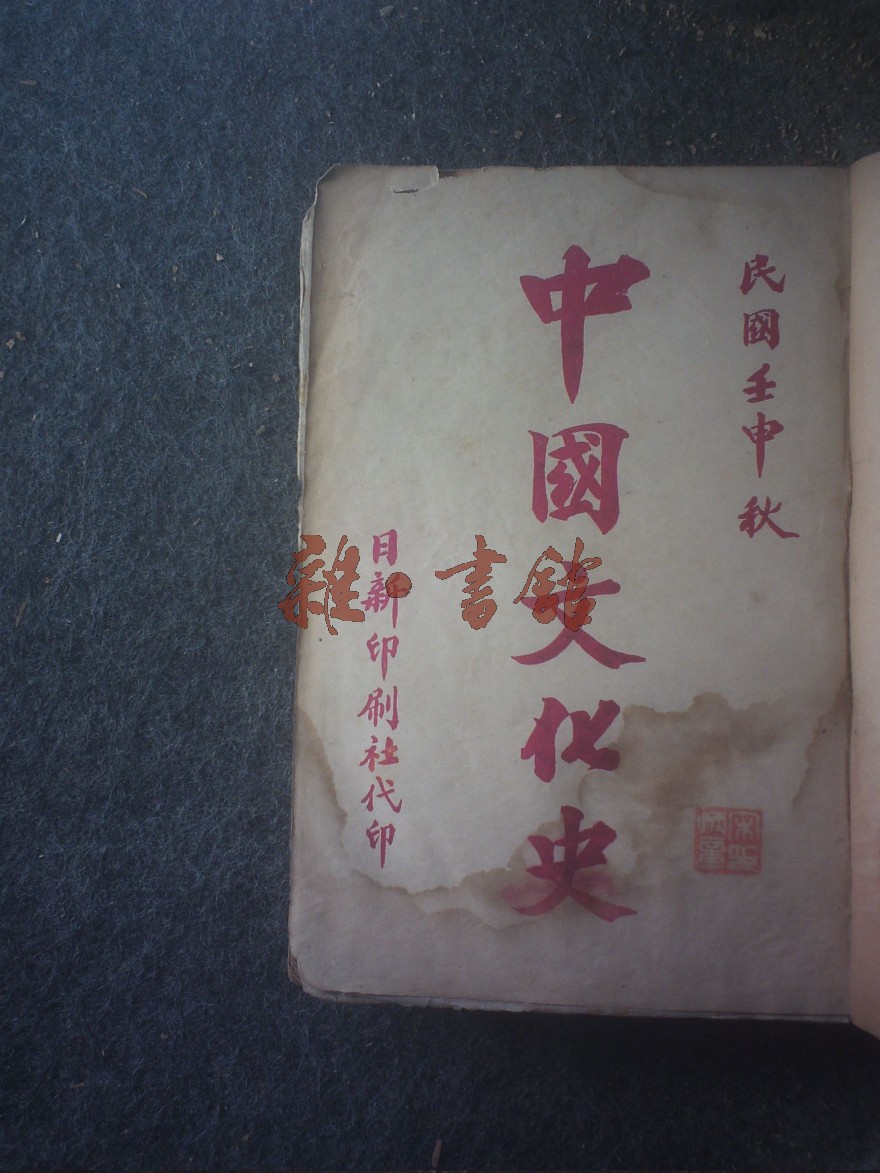 民國壬申秋
中國文化史
日新印刷社代印
雜·書館